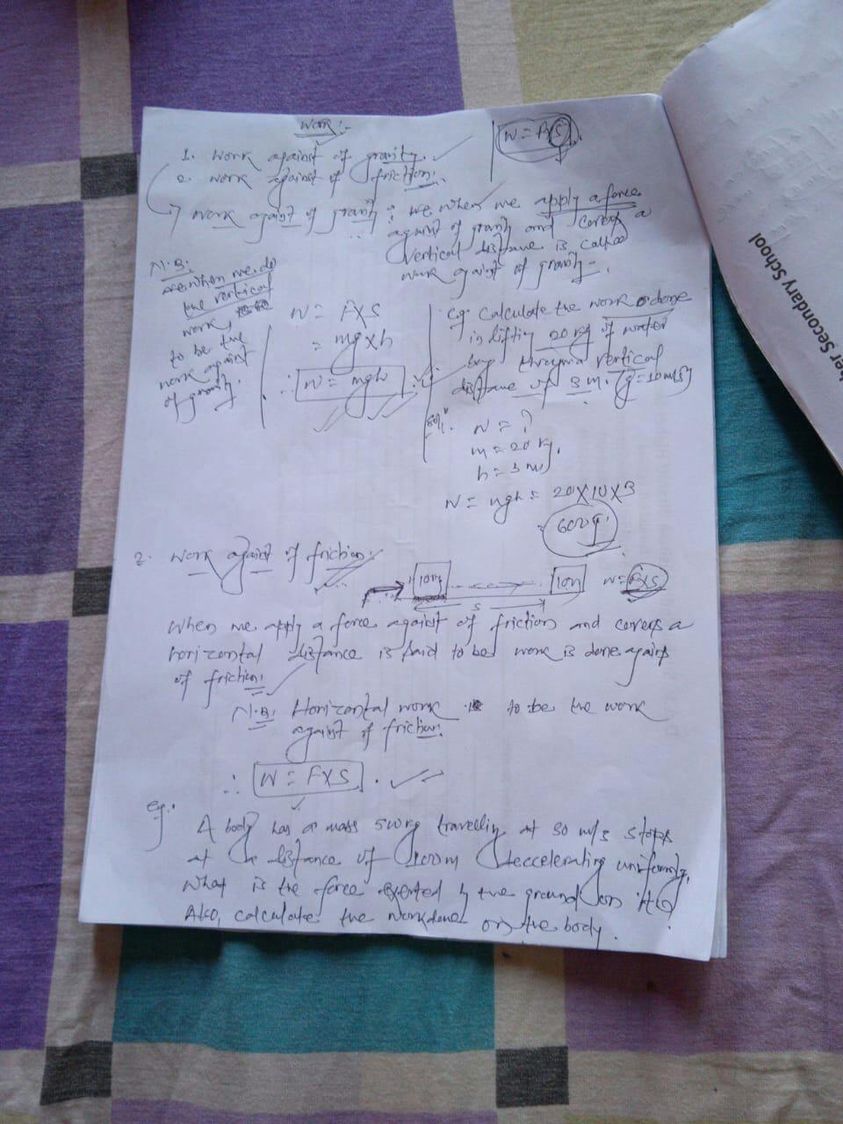 Work:-
W = FxS
1. Work against of gravity.
2. Work against of friction.
Work against of gravity: when we apply a force
against of gravity and covers a
vertical distance is called
work against of gravity.
N.B:
when we do
the vertical
work,
to be the
work against
of gravity.
W = FxS
= mgxh
∴ W = mgh
eg: Calculate the work done
in lifting 20 kg of water
vertical
distance of 3 m. (g=10m/s²)
Solⁿ.
W = ?
m = 20 kg.
h = 3 m
W = mgh = 20X10X3
= 600 J.
2. Work against of friction:
10N
10N
S
W = FxS
When we apply a force against of friction and covers a
horizontal distance is said to be work is done against
of friction.
N.B: Horizontal work to be the work
against of friction.
∴ W = FXS.
eg:
A body has a mass 50kg travelling at 30 m/s stops
at a distance of deccelerating uniformly.
What is the force exerted by the ground on it?
Also, calculate the workdone on the body.
her Secondary School